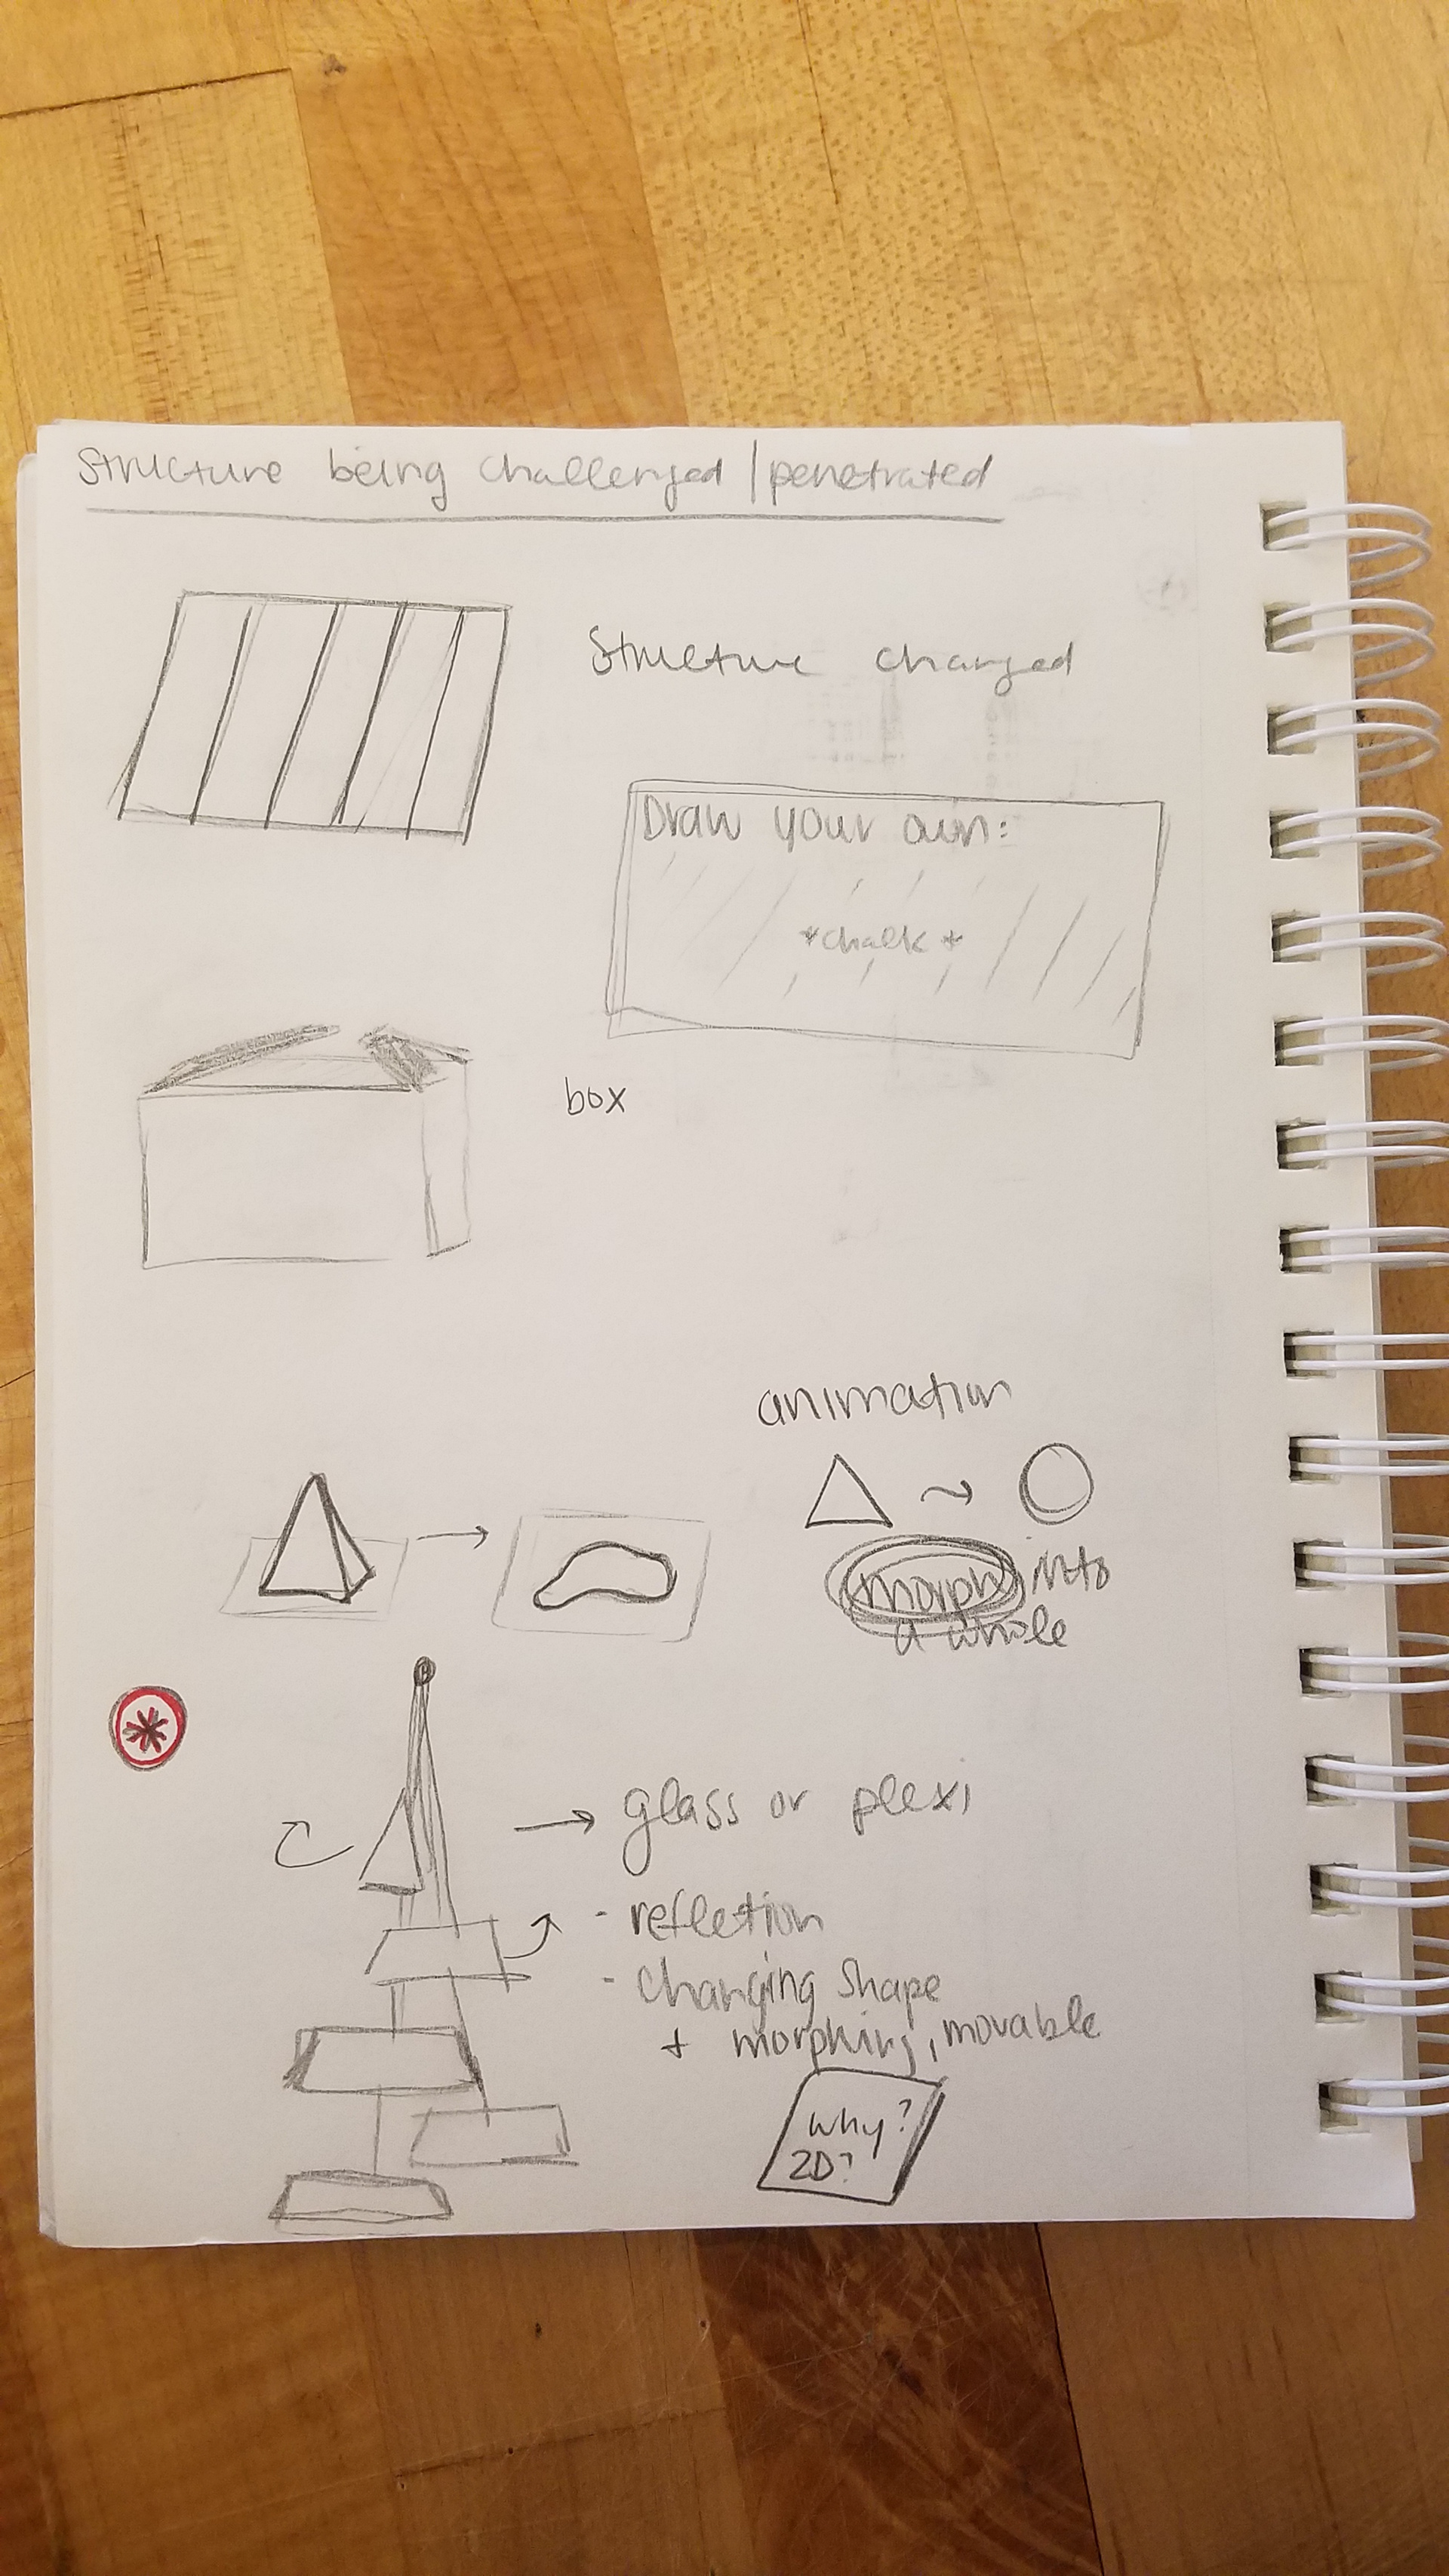 Structure being challenged / penetrated
Structure changed
Draw your own:
*chalk*
box
animation
morph into
a whole
→ glass or plexi
- refletion
- changing shape
+ morphing, movable
why?
2D?